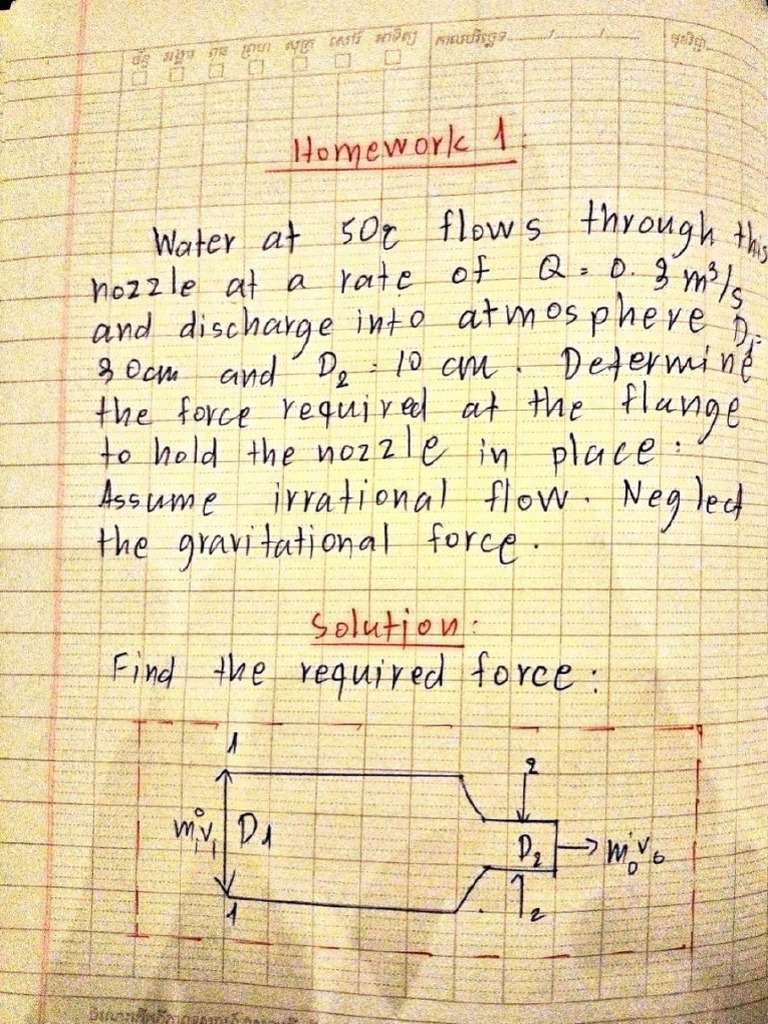 ច័ន្ទ អង្គារ ពុធ ព្រហ សុក្រ សៅរ៍ អាទិត្យ កាលបរិច្ឆេទ ......../......../........
Homework 1:
Water at 50℃ flows through this
nozzle at a rate of Q = 0.3 m³/s
and discharge into atmosphere D₁=
30cm and D₂ = 10 cm. Determine
the force required at the flange
to hold the nozzle in place:
Assume irrational flow. Neglect
the gravitational force.
Solution:
Find the required force:
1
2
ṁᵢvᵢ D1 D₂ ṁ₀v₀
1
2